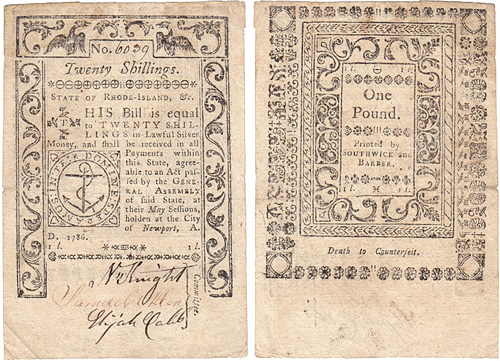 No. 6039
Twenty Shillings.
STATE OF RHODE-ISLAND, &c.
THIS Bill is equal
to TWENTY SHIL-
LINGS in Lawful Silver
Money, and shall be received in all
Payments within
this State, agree-
able to an Act pas-
sed by the GENE-
RAL ASSEMBLY
of said State, at
their May Sessions,
holden at the City
of Newport, A.
D. 1786.
1 l. 1 l.
N. Knight
Samuel Allen
Elijah Cobb
Committee.
1 l. 1 l.
One
Pound.
Printed by
SOUTHWICK and
BARBER.
1 l. 1 l.
Death to Counterfeit.